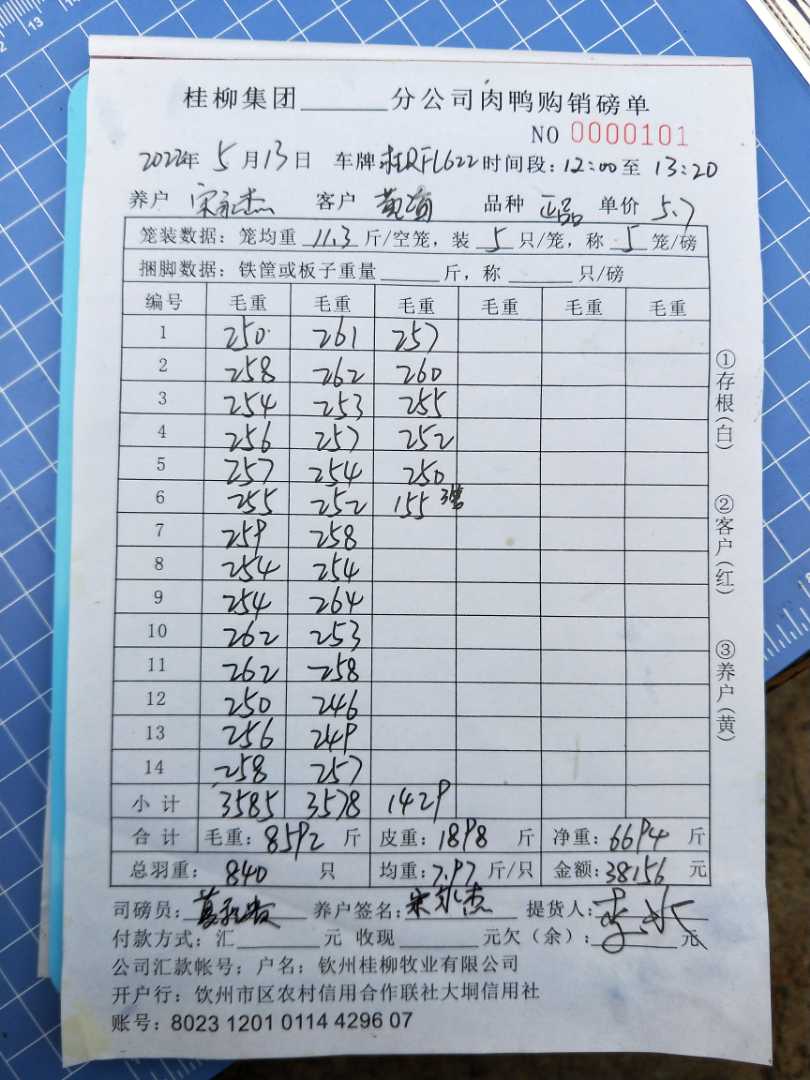 桂柳集团______分公司肉鸭购销磅单
NO 0000101
2022年 5 月 13 日 车牌 桂RFL622 时间段: 12:00 至 13:20
养户 宋永杰 客户 黄海 品种 正品 单价 5.7
笼装数据: 笼均重 11.3 斤/空笼, 装 5 只/笼, 称 5 笼/磅
捆脚数据: 铁筐或板子重量______斤, 称______只/磅
编号 毛重 毛重 毛重 毛重 毛重 毛重
1 250 261 257
2 258 262 260
3 254 253 255
4 256 257 252
5 257 254 250
6 255 252 155 3笼
7 259 258
8 254 254
9 254 264
10 262 253
11 262 258
12 250 246
13 256 249
14 258 257
小计 3585 3578 1429
合计 毛重: 8592 斤 皮重: 1898 斤 净重: 6694 斤
总羽重: 840 只 均重: 7.97 斤/只 金额: 38156 元
司磅员: 养户签名: 宋永杰 提货人:
付款方式: 汇______元 收现______元欠(余):______元
公司汇款帐号: 户名: 钦州桂柳牧业有限公司
开户行: 钦州市区农村信用合作联社大垌信用社
账号: 8023 1201 0114 4296 07
①存根(白)
②客户(红)
③养户(黄)